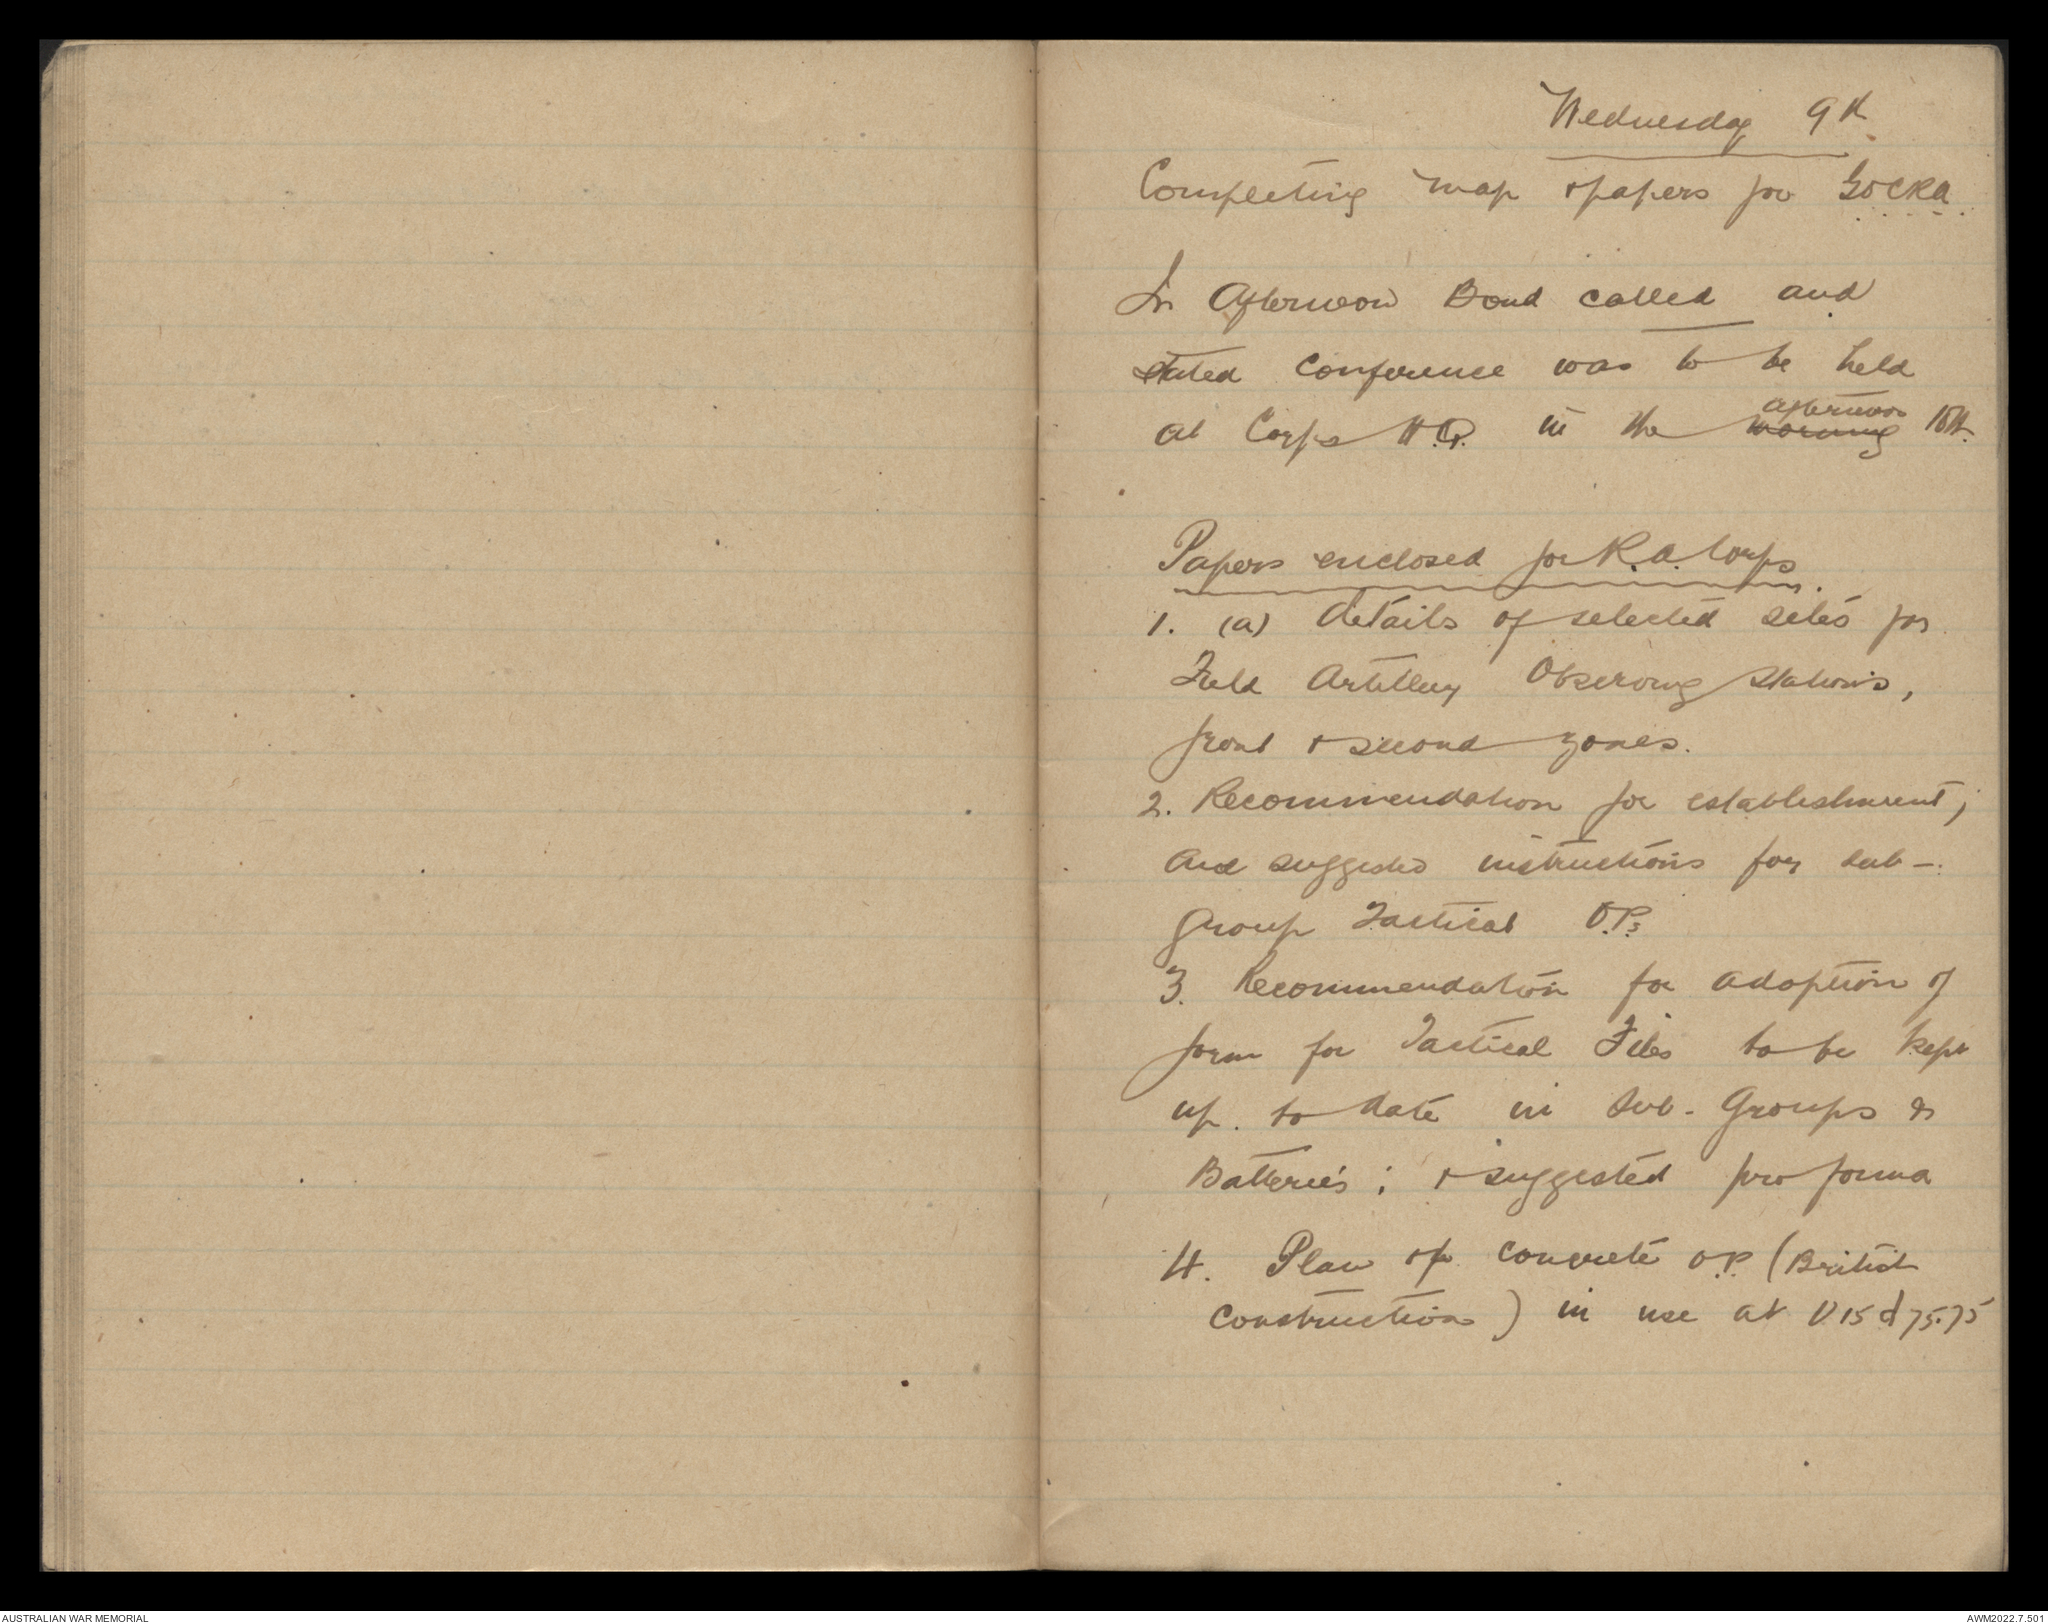 Wednesday 9th
Completing map & papers for GOCRA.
In Afternoon Bond called and
stated conference was to be held
at Corps H.Q. in the morning afternoon 10th.
Papers enclosed for R.A. Corps.
1. (a) details of selected sites for
Field Artillery Observing Stations,
front & second zones.
2. Recommendation for establishment;
and suggested instructions for sub-
group Tactical O.P.s
3. Recommendation for adoption of
form for Tactical Files to be kept
up to date in Sub-Groups &
Batteries; & suggested pro forma
4. Plan of concrete O.P. (British
construction) in use at V15d75.75
AUSTRALIAN WAR MEMORIAL
AWM2022.7.501